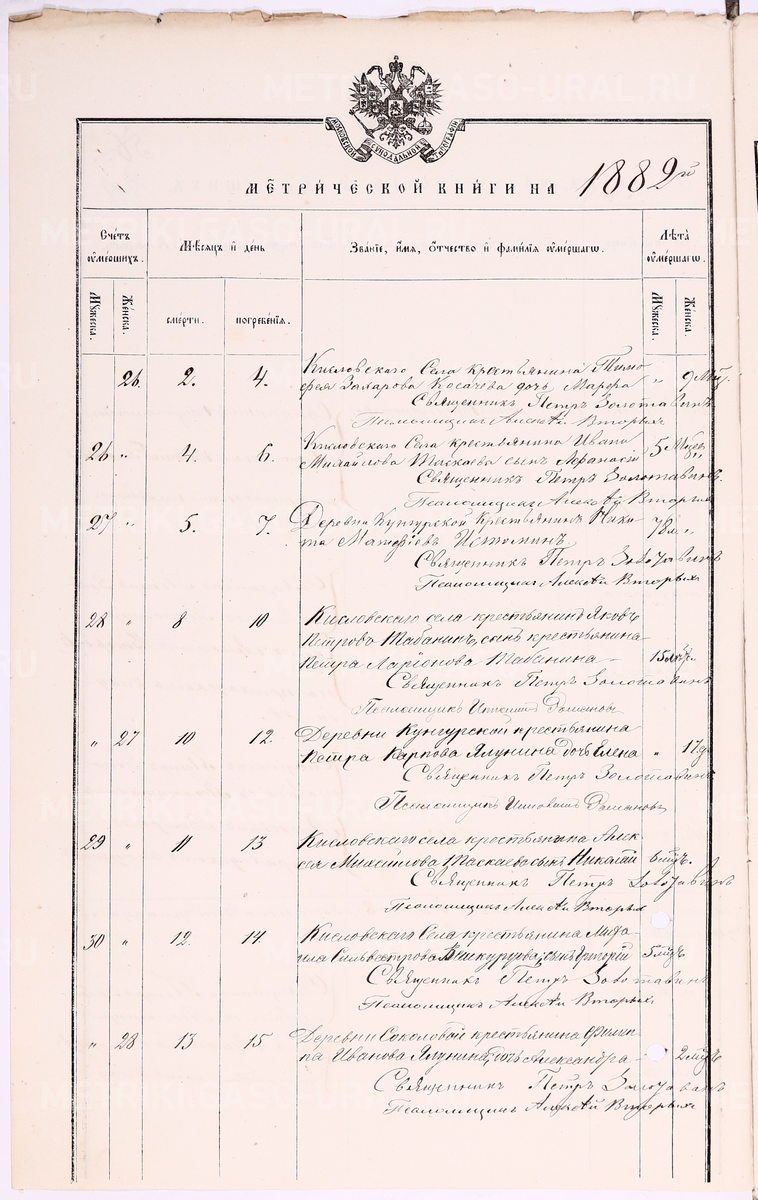 МОСКОВСКОЙ СѴНОДАЛЬНОЙ ТИПОГРАФІИ
МЕТРИ́ЧЕСКОЙ КНИ́ГИ НА 1882й
Сче́тъ ᲂу҆ме́ршихъ.
Мѣ́сяцъ и҆ де́нь
Зва́нїе, и҆́мя, ѻ҆́тчество и҆ фами́лїя ᲂу҆ме́ршагѡ.
Лѣ́та ᲂу҆ме́ршагѡ.
Мꙋ́жеска.
Же́нска.
сме́рти.
погребе́нїѧ.
Мꙋ́жеска.
Же́нска.
26. 2. 4. Кисловскаго Села крестьянина Тимо
фея Захарова Косачева дочь Марфа " 9 Мцъ.
Священникъ Петръ Золотавинъ
Псаломщикъ Алексѣй Вторыхъ
26 " 4. 6. Кисловскаго Села крестьянина Ивана
Михайлова Таскаева сынъ Афанасій 5 Мцев "
Священникъ Петръ Золотавинъ.
Псаломщикъ Алексѣй Вторыхъ
27 " 5. 7. Деревни Кунгурской Крестьянинъ Ники
та Матвѣевъ Истоминъ 78 л "
Священникъ Петръ Золотавинъ
Псаломщикъ Алексѣй Вторыхъ
28 " 8 10 Кисловскаго села крестьянинъ Яковъ
Петровъ Табанинъ, сынъ крестьянина
Петра Ларіонова Табанина – 15 лѣтъ
Священникъ Петръ Золотавинъ
Псаломщикъ
" 27 10 12. Деревни Кунгурской крестьянина
Петра Карпова Ялунина дочь Елена " 17 д
Священникъ Петръ Золотавинъ
Псаломщикъ
29 " 11 13 Кисловскаго села крестьянина Алек-
сея Михайлова Таскаева сынъ Николай 6 мцъ.
Священникъ Петръ Золотавинъ
Псаломщикъ Алексѣй Вторыхъ
30 " 12. 14. Кисловскаго Села крестьянина Миха-
ила Сильвестрова сынъ Григорій 5 мцъ
Священникъ Петръ Золотавинъ
Псаломщикъ Алексѣй Вторыхъ
" 28 13 15 Деревни Соколовой крестьянина Филип-
па Иванова Ялунина дочь Александра – 2 мцъ
Священникъ Петръ Золотавинъ
Псаломщикъ Алексѣй Вторыхъ